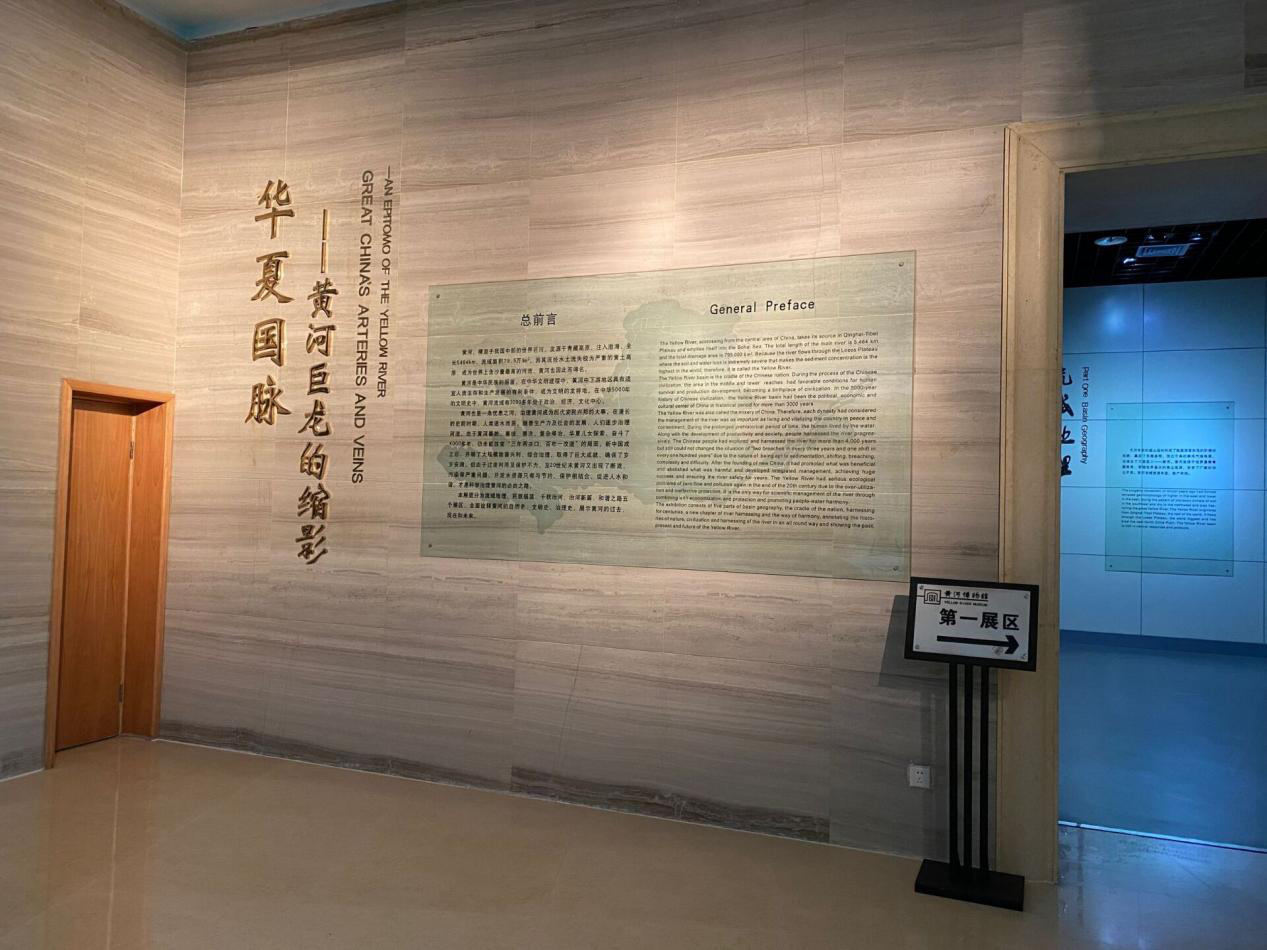 华夏国脉
——黄河巨龙的缩影
GREAT CHINA'S ARTERIES AND VEINS
—AN EPITOMO OF THE YELLOW RIVER
总前言
黄河，横亘于我国中部的世界巨川，发源于青藏高原，注入渤海，全
长5464km，流域面积79.5万km²，因其流经水土流失极为严重的黄土高
原，成为世界上含沙量最高的河流，黄河也因此而得名。
黄河是中华民族的摇篮，在中华文明进程中，黄河中下游地区具有适
宜人类生存和生产发展的有利条件，成为文明的发祥地。在中华5000年
的文明史中，黄河流域有3000多年处于政治、经济、文化中心。
黄河也是一条忧患之河，治理黄河成为历代安民兴邦的大事。在漫长
的史前时期，人类逐水而居，随着生产力及社会的发展，人们逐步治理
河流。由于黄河善淤、善徙、善决、复杂难治，华夏儿女探索、奋斗了
4000多年，仍未能改变“三年两决口、百年一改道”的局面。新中国成
立后，开展了大规模除害兴利、综合治理，取得了巨大成就，确保了岁
岁安澜。但由于过度利用及保护不力，至20世纪末黄河又出现了断流、
污染等严重问题，开发水资源只有与节约、保护相结合，促进人水和
谐，才是科学治理黄河的必由之路。
本展览分为流域地理、民族摇篮、千秋治河、治河新篇、和谐之路五
个展区，全面诠释黄河的自然史、文明史、治理史，展示黄河的过去、
现在和未来。
General Preface
The Yellow River, acrossing from the central area of China, takes its source in Qinghai-Tibet
Plateau and empties itself into the Bohai Sea. The total length of the main river is 5,464 km
and the total drainage area is 795,000 km². Because the river flows through the Loess Plateau
where the soil and water loss is extremely severe that makes the sediment concentration is the
highest in the world, therefore, it is called the Yellow River.
The Yellow River basin is the cradle of the Chinese nation. During the process of the Chinese
civilization, the area in the middle and lower reaches had favorable conditions for human
survival and production development, becoming a birthplace of civilization. In the 5000-year
history of Chinese civilization, the Yellow River basin had been the political, economic and
cultural center of China in historical period for more than 3000 years.
The Yellow River was also called the misery of China. Therefore, each dynasty had considered
the management of the river was as important as living and vitalizing the country in peace and
contentment. During the prolonged prehistorical period of time, the human lived by the water.
Along with the development of productivity and society, people harnessed the river progres-
sively. The Chinese people had explored and harnessed the river for more than 4,000 years
but still could not changed the situation of "two breaches in every three years and one shift in
every one hundred years" due to the nature of being apt to sedimentation, shifting, breaching,
complexity and difficulty. After the founding of new China, it had promoted what was beneficial
and abolished what was harmful and developed integrated management, achieving huge
success and ensuring the river safety for years. The Yellow River had serious ecological
problems of zero flow and pollution again in the end of the 20th century due to the over-utiliza-
tion and ineffective protection. It is the only way for scientific management of the river through
combining with economization and protection and promoting people-water harmony.
The exhibition consists of five parts of basin geography, the cradle of the nation, harnessing
for centuries, a new chapter of river harnessing and the way of harmony, annotating the histo-
ries of nature, civilization and harnessing of the river in an all round way and showing the past,
present and future of the Yellow River.
黄河博物馆
YELLOW RIVER MUSEUM
第一展区
Part One Basin Geography